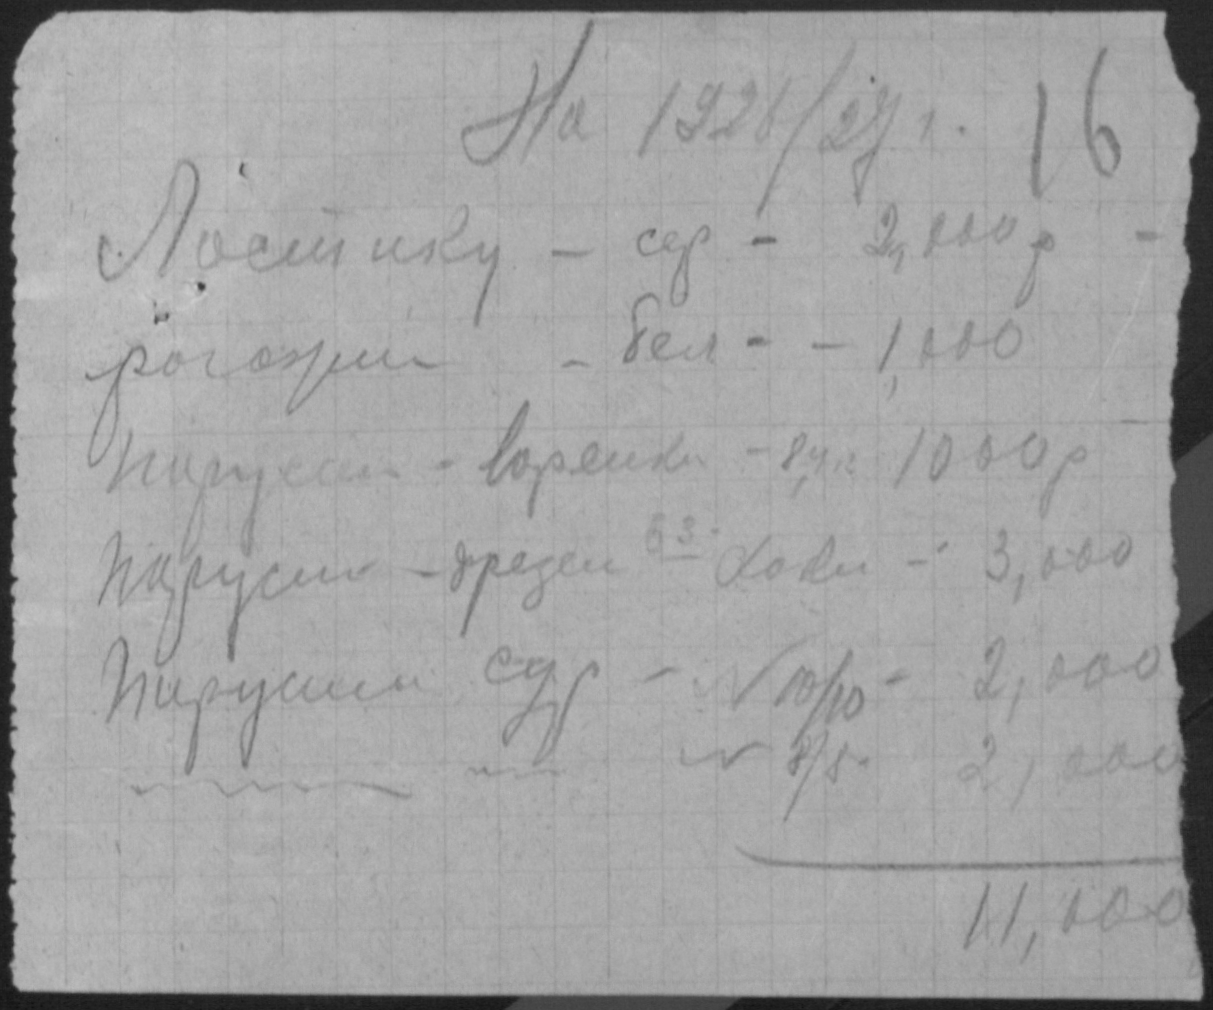 На 1926/27 г. 16
Ластику – сер – 2,000 р –
рогожки – бел - – 1,000
Парусин – варенки – 1000 р
Парусин – презен хаки – 3,000
Парусин сур – N 10/10 – 2,000
N 8/8 2,000
11,000